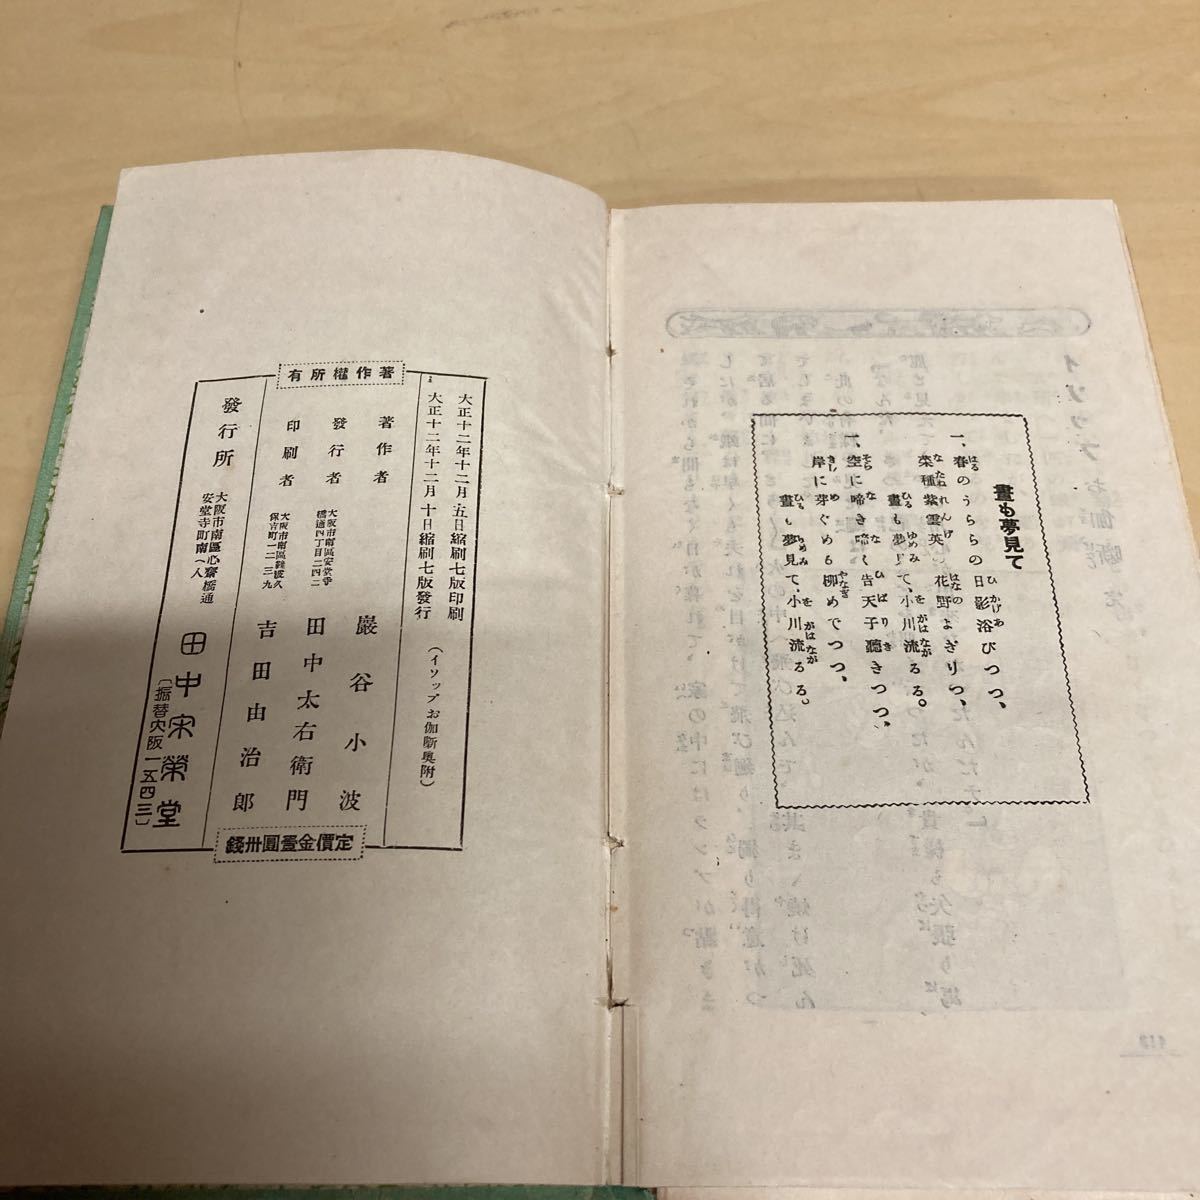 晝も夢見て
一、春のうららの日影浴びつつ、
菜種紫雲英の花野よぎりつ、
晝も夢見て、小川流るる。
二、空に啼き啼く告天子聽きつつ、
岸に芽ぐめる柳めでつつ、
晝も夢見て、小川流るる。
413
著作權所有
大正十二年十二月五日縮刷七版印刷
大正十二年十二月十日縮刷七版發行
(イソップお伽噺奥附)
著作者 巖谷小波
發行者 大阪市南區安堂寺橋通四丁目二四二 田中太右衛門
印刷者 保吉町一二三九 吉田由治郎
發行所 大阪市南區心齋橋通安堂寺町南へ入 田中宋榮堂
(振替大阪一五四三)
定價金壹圓卅錢